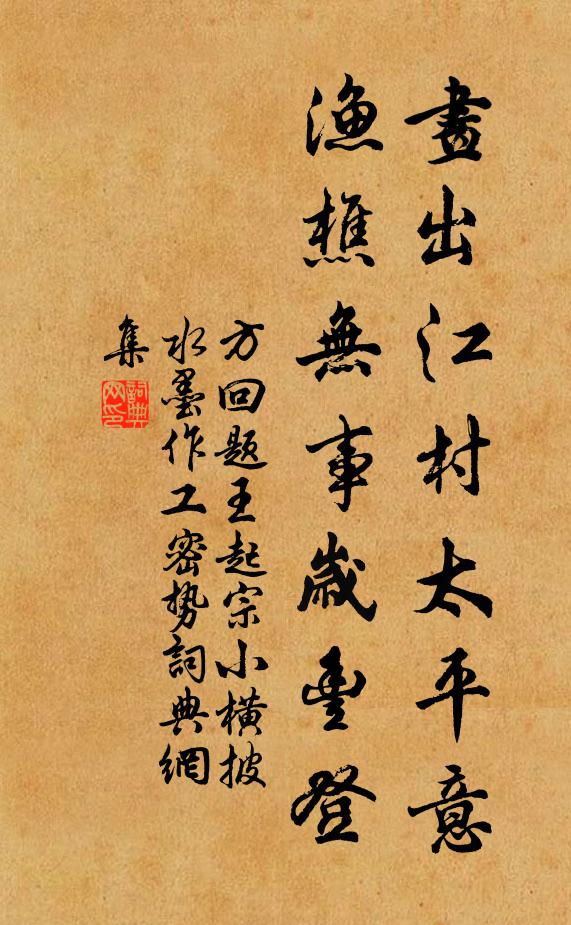 畫出江村太平意
漁樵無事歲豐登
方回題王起宗小橫披
水墨作工密势詞典網
集
詞典網印